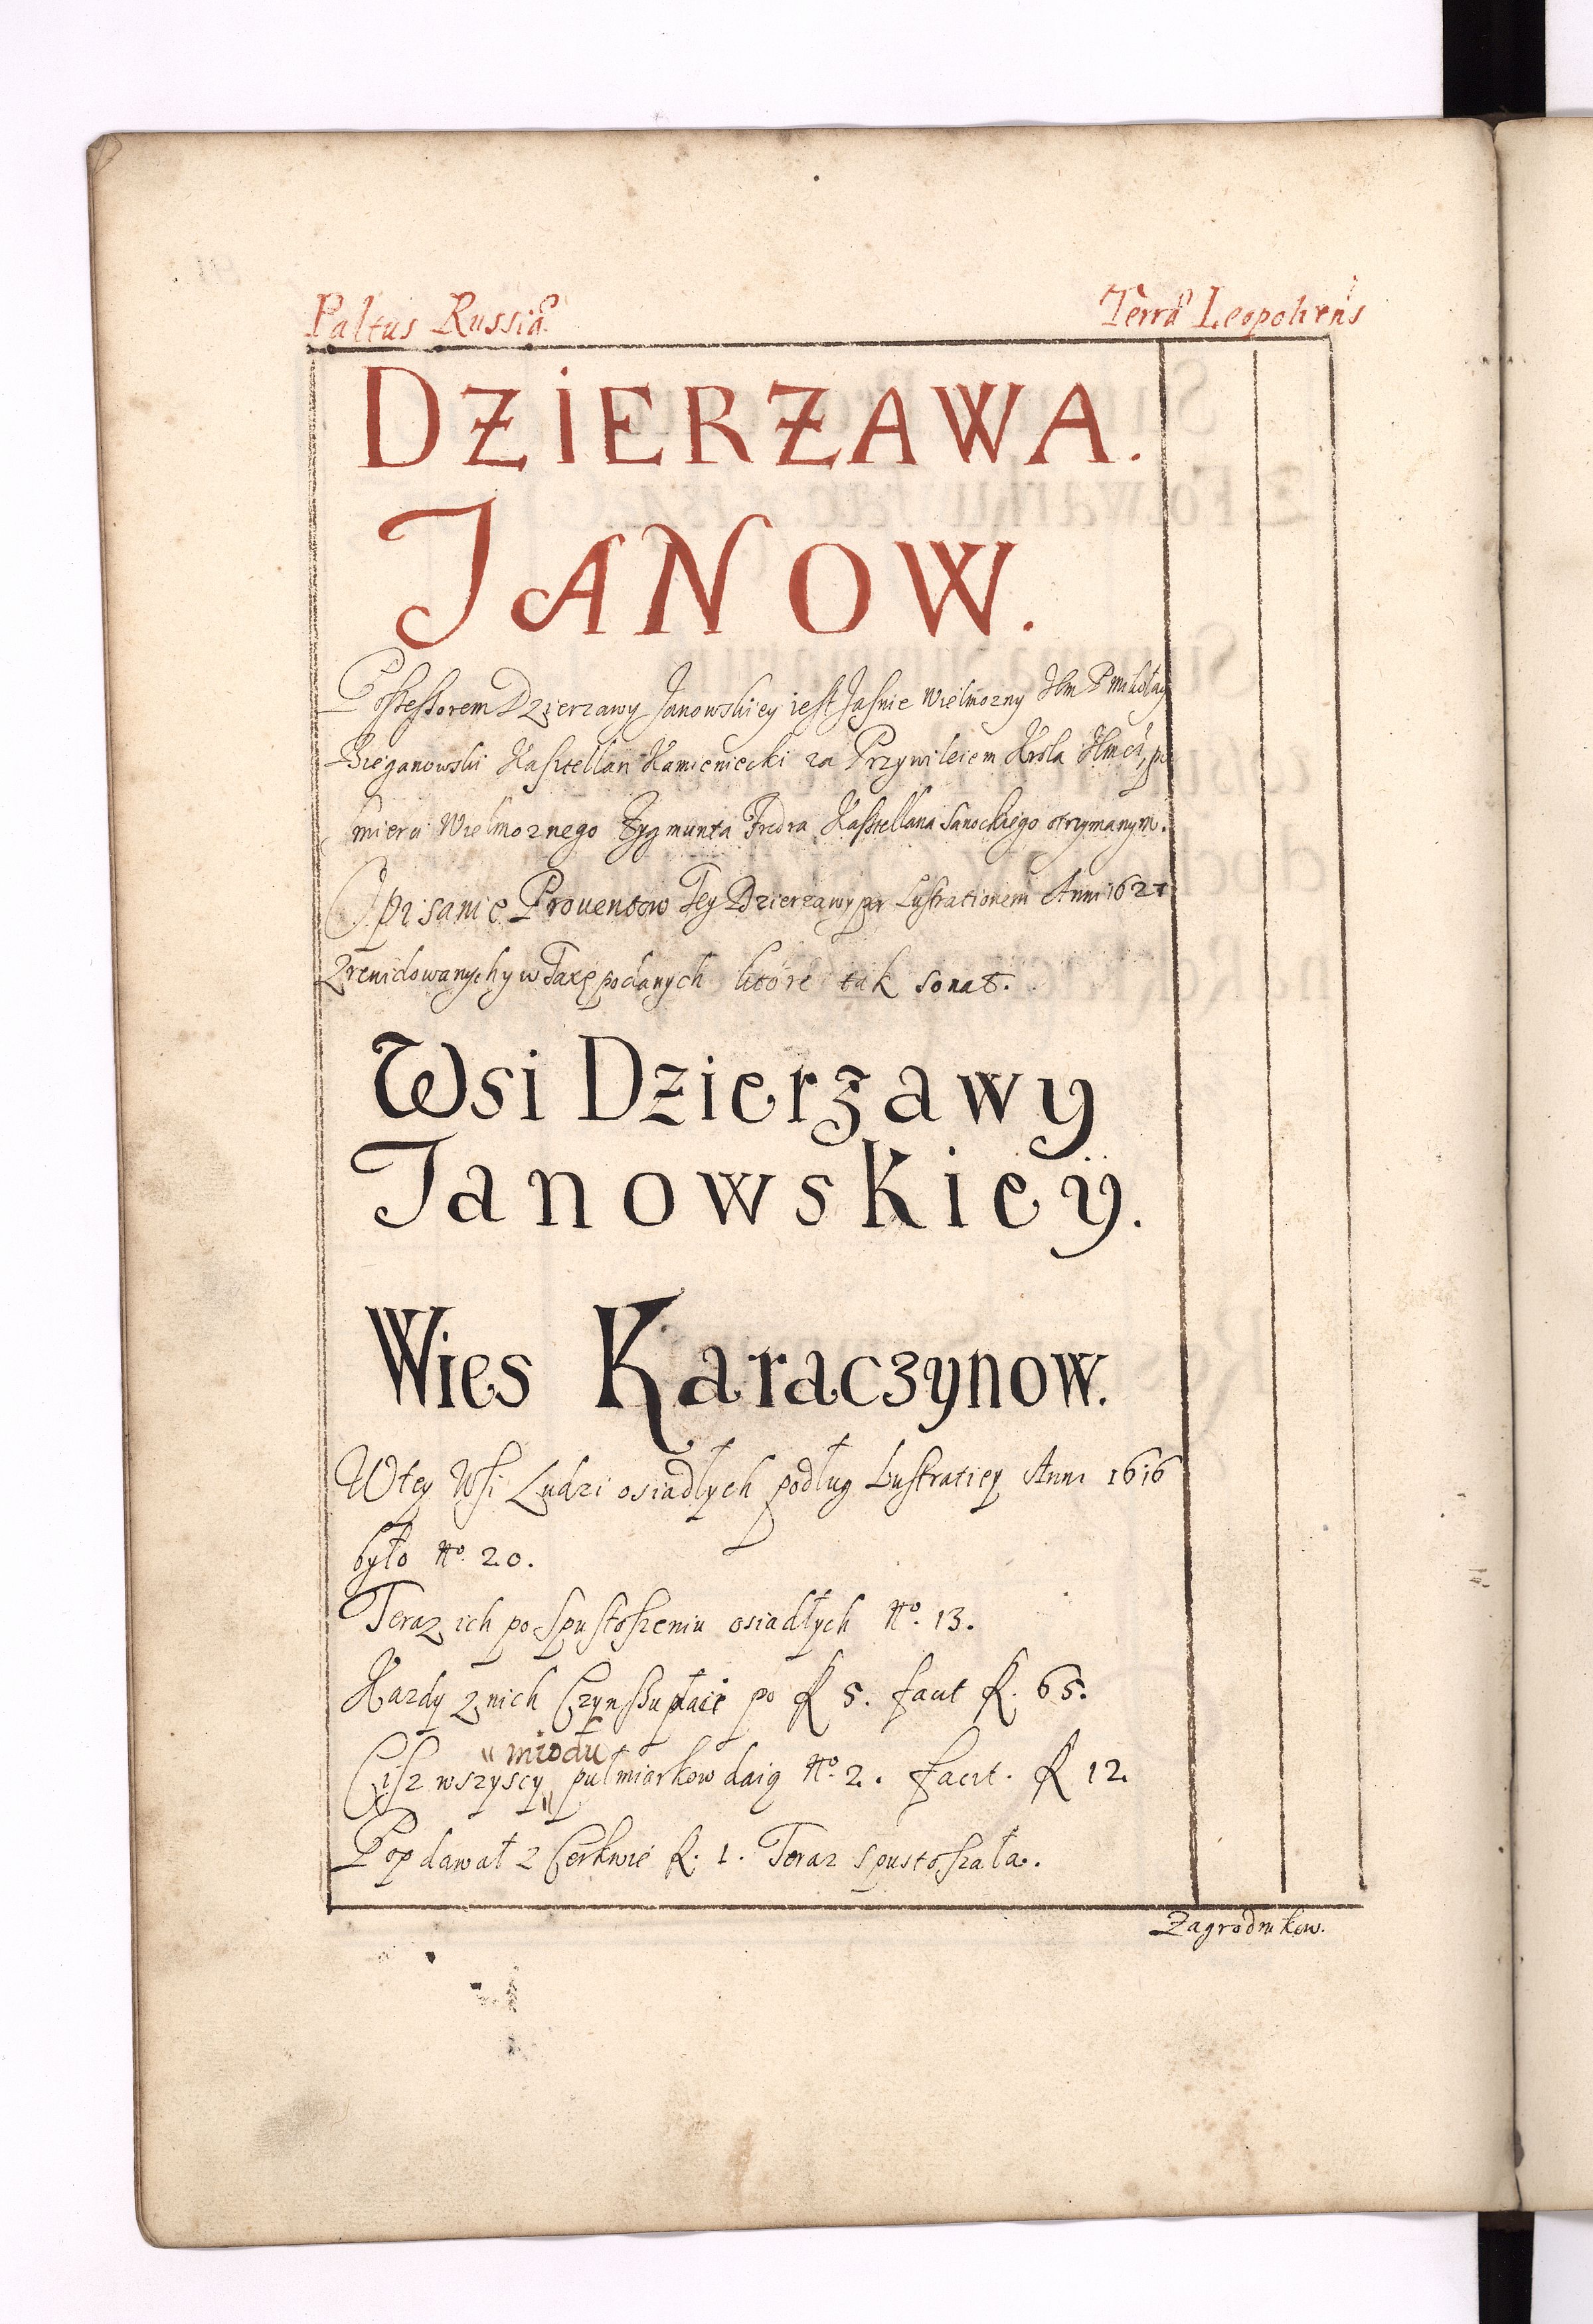 Paltus Russiæ
Terræ Leopoliens
DZIERZAWA.
JANOW.
Possessorem Dzierzawy Janowskiey iest Jasnie Wielmozny Jm P Mikołay
Bieganowski Kasztellan Kamieniecki za Przywileiem Krola Jmci, po
smierci Wielmoznego Zygmunta Fredra Kasztellana Sanockiego otrzymanym.
Opisanie Prouentow Tey Dzierzawy per Lustrationem Anni 1621
Zrewidowanych y w Taxę podanych ktore tak sonat.
Wsi Dzierzawy
Janowskiey.
Wies Karaczynow.
W tey Wsi Ludzi osiadłych podług Lustratiey Anni 1616
było No. 20.
Teraz ich po Spustoszeniu osiadłych No. 13.
Kazdy z nich Czynszu płaci po fl 5. facit fl. 65.
miodu
Cisz wszyscy pułmiarkow daią No. 2. facit. fl 12.
Pop dawał z Cerkwie fl. 1. Teraz spustoszała.
Zagrodnikow.